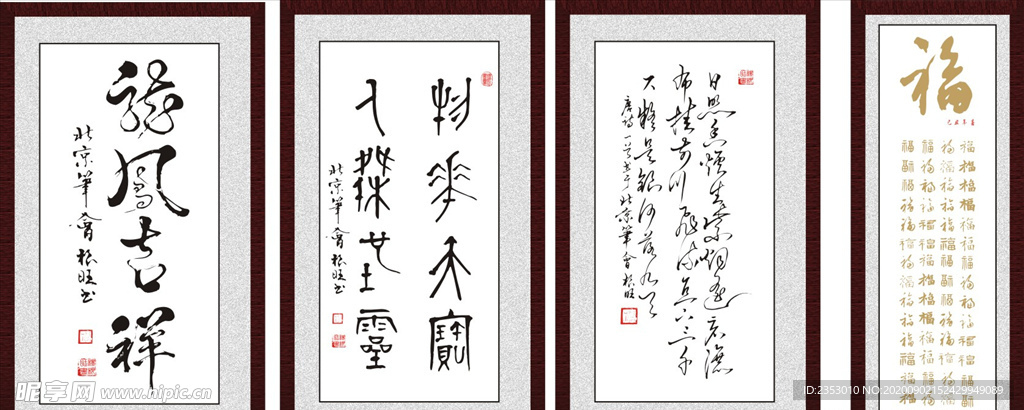 龍鳳吉祥
北京筆會
物華天寶
人傑地靈
北京筆會
日照香炉生紫烟遥看瀑
布挂前川飞流直下三千
尺疑是银河落九天
唐诗一首于北京筆會
福
福福福福
福福福福
福福福福
福福福福
福福福福
福福福福
福福福福
福福福福
福福福福
福福福福
福福福福
福福福福
福福福福
福福福福
昵享网 www.nipic.cn
ID:2353010 NO:20200902152429949089